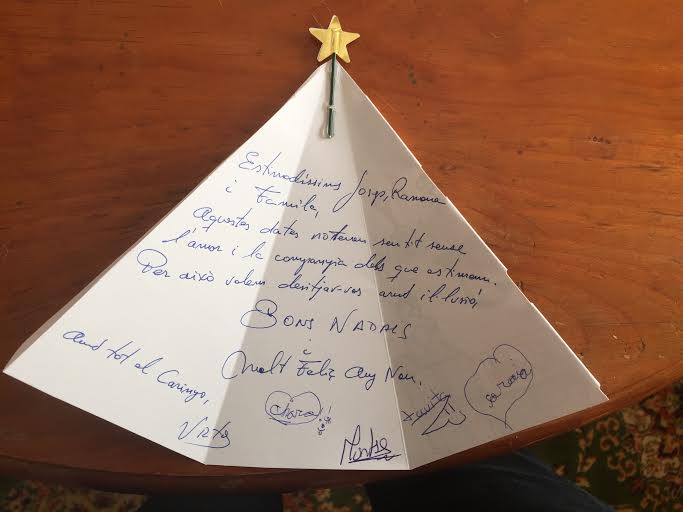 Estimadíssims Josep, Ramona
i Família,
Aquestes dates no tenen sentit sense
l'amor i la companyia dels que estimem.
Per això volem desitjar-vos amb il·lusió,
BONS NADALS
i
Molt Feliç Any Nou.
Amb tot el Carinyo,